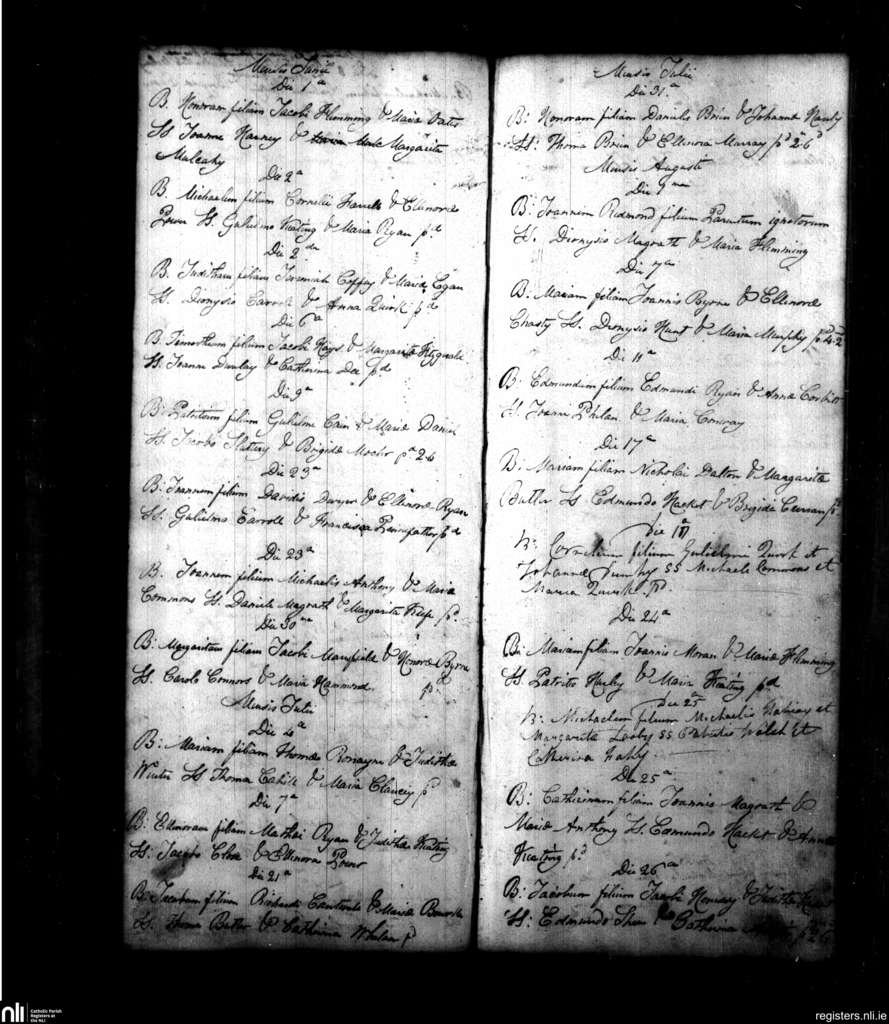 Mensis Junii
Die 1a
B. Honoram filiam Jacobi Flemming & Maria Oates
SS Joanne Harney & Margarita
Mulcahy
Die 2a
B. Michaelem filium Cornelii & Ellinora
Power SS. Gulielmo Keating & Maria Ryan pd
Die 2da
B. Juditham filiam Jeremiah Coffey & Maria Egan
SS. Dionysio Carroll & Anna Quirk pd
Die 6a
B. Timotheum filium Jacobi Hays & Margarita Fitzgerald
SS. Joanne Dunlay & Catherina Dee pd
Die 9a
B: Patritium filium Gulielmi Cain & Maria Daniel
SS Jacobo Slattery & Brigida Meehr pd 2-6
Die 23a
B: Joannem filium Davidis Dwyer & Ellinora Ryan
SS. Gulielmo Carroll & Francisca Pennefather pd
Die 23a
B. Joannem filium Michaelis Anthony & Maria
Commons SS. Daniele Magrath & Margarita pd
Die 30ma
B: Margaritam filiam Jacobi Mansfield & Honora Byrne
SS. Carolo Connors & Maria Hammond pd
Mensis Julii
Die 4a
B: Mariam filiam Thoma Ronayne & Juditha
Winter SS Thoma Cahill & Maria Clancy pd
Die 7a
B: Ellinoram filiam Mathei Ryan & Juditha Keating
SS. Jacobo & Ellinora Power
Die 21a
B: Jacobum filium Richardi Cantwell & Maria Bourke
SS. Thoma Butler & Catherina Whelan pd
Mensis Julii
Die 31a
B: Honoram filiam Daniels Brien & Johanna
SS: Thoma Brien & Ellinora Murray pd 2-6d
Mensis Augusti
Die
B: Joannem Redmond filium Parentum ignotorum
SS. Dionysio Magrath & Maria Flemming
Die 7a
B: Mariam filiam Joannis Byrne & Ellinora
SS. Dionysio Hunt & Maria Murphy pd 4-2
Die 11a
B: Edmundum filium Edmundi Ryan & Anna
SS. Joanne Phelan & Maria Conway
Die 17a
B: Mariam filiam Nicholai Dalton & Margarita
Butler SS Edmundo Hacket & Brigida Curran pd
Die
B: Cornelium filium Gulielmi Quirk et
Johanna SS Michaele Commons et
Maria Quirk P.
Die 24a
B: Mariam filiam Joannis Moran & Maria Flemming
SS Patritio Hurley & Maria Keating pd
Die 25a
B: Michaelem filium Michaelis et
Margarita SS Patritio Welsh et
Catherina
Die 25a
B: Catherinam filiam Joannis Magrath &
Maria Anthony SS. Edmundo Hacket & Anna
Keating pd
Die 26a
B: Jacobum filium Jacobi & Juditha
SS: Edmundo Shea & Catherina pd 2-6
nli
Catholic Parish
Registers at
the NLI
registers.nli.ie